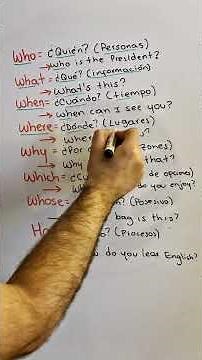 Who = ¿Quién? (Personas)
→ who is the President?
What = ¿Qué? (información)
→ What's this?
When = ¿Cuándo? (tiempo)
→ when can I see you?
Where = ¿Dónde? (Lugares)
→
Why = ¿Por
→ Why that?
Which = de opciones)
→ do you enjoy?
Whose = (Posesivo)
→ bag is this?
(Proceso)
do you lear English?